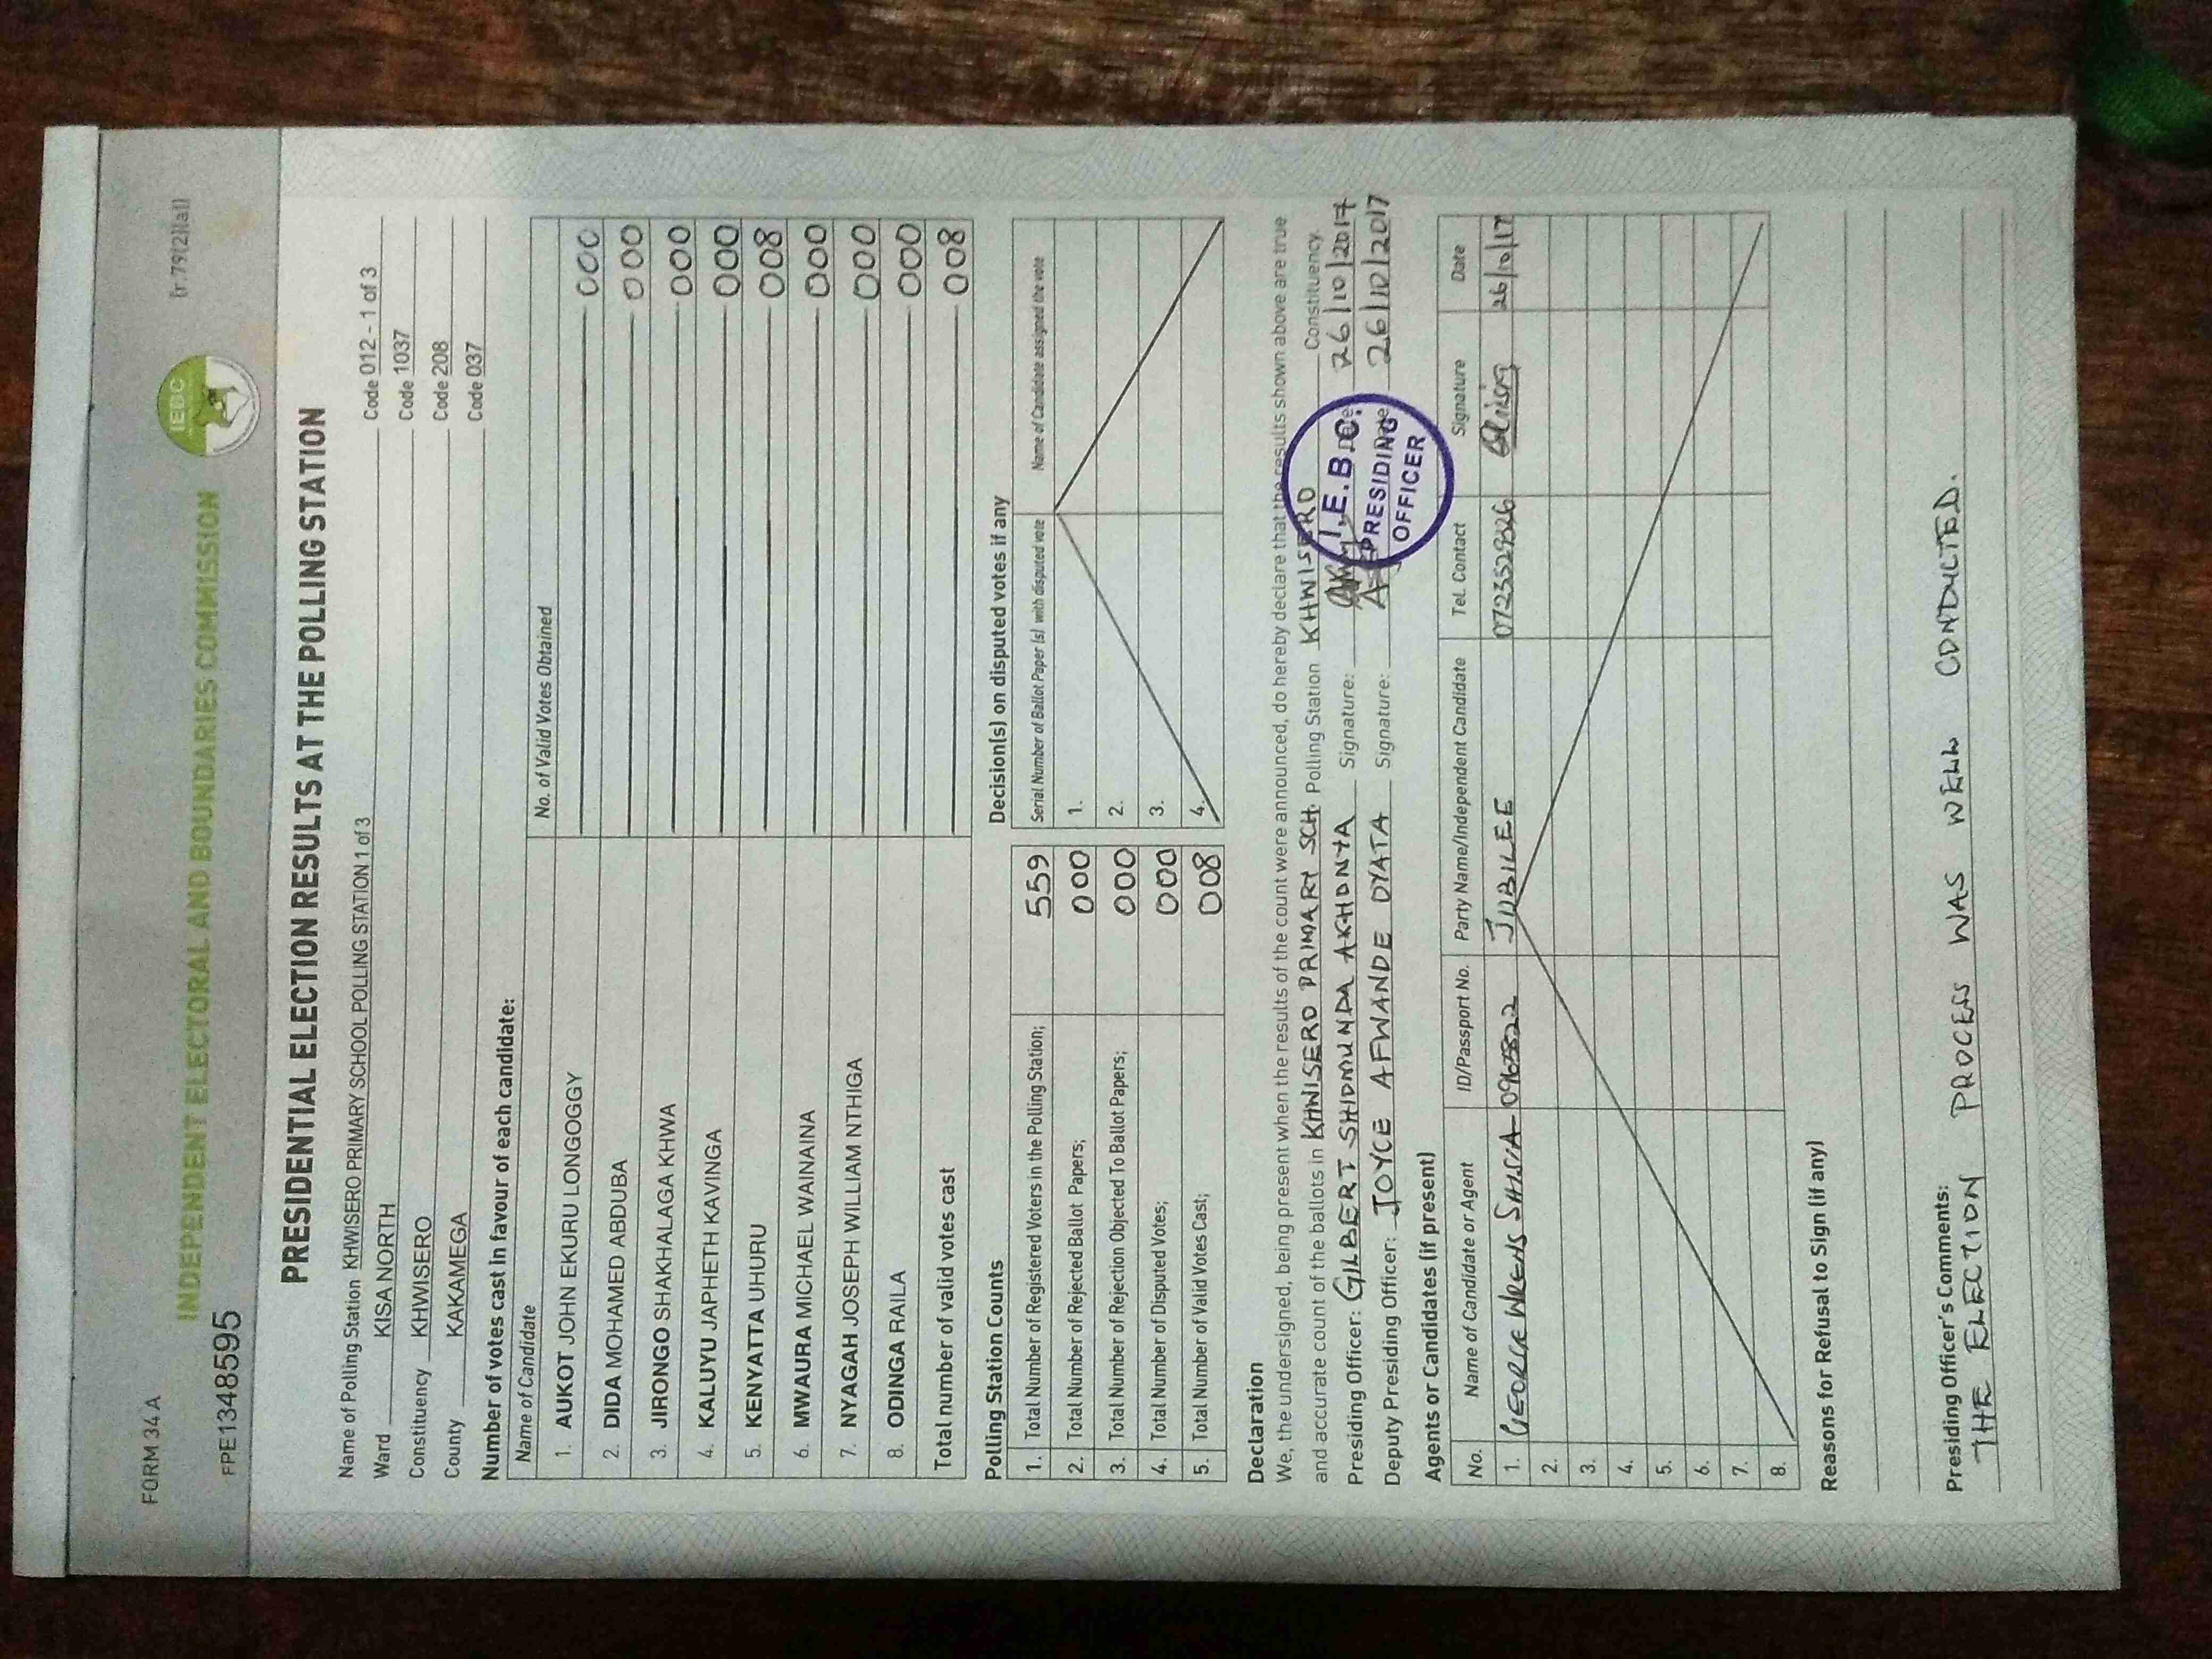 FORM 34 A
(r.79(2)(a))
IEBC
INDEPENDENT ELECTORAL AND BOUNDARIES COMMISSION
FPE1348595
PRESIDENTIAL ELECTION RESULTS AT THE POLLING STATION
Name of Polling Station KHWISERO PRIMARY SCHOOL POLLING STATION 1 of 3 Code 012 - 1 of 3
Ward KISA NORTH Code 1037
Constituency KHWISERO Code 208
County KAKAMEGA Code 037
Number of votes cast in favour of each candidate:
Name of Candidate No. of Valid Votes Obtained
1. AUKOT JOHN EKURU LONGOGGY 000
2. DIDA MOHAMED ABDUBA 000
3. JIRONGO SHAKHALAGA KHWA 000
4. KALUYU JAPHETH KAVINGA 000
5. KENYATTA UHURU 008
6. MWAURA MICHAEL WAINAINA 000
7. NYAGAH JOSEPH WILLIAM NTHIGA 000
8. ODINGA RAILA 000
Total number of valid votes cast 008
Polling Station Counts
1. Total Number of Registered Voters in the Polling Station; 559
2. Total Number of Rejected Ballot Papers; 000
3. Total Number of Rejection Objected To Ballot Papers; 000
4. Total Number of Disputed Votes; 000
5. Total Number of Valid Votes Cast; 008
Decision(s) on disputed votes if any
Serial Number of Ballot Paper (s) with disputed vote Name of Candidate assigned the vote
1.
2.
3.
4.
Declaration
We, the undersigned, being present when the results of the count were announced, do hereby declare that the results shown above are true
and accurate count of the ballots in KHWISERO PRIMARY SCH. Polling Station KHWISERO Constituency.
Presiding Officer: GILBERT SHIDMUNDA AKHONYA Signature: Date 26/10/2017
Deputy Presiding Officer: JOYCE AFWANDE OYATA Signature: Date 26/10/2017
I.E.B.C.
PRESIDING
OFFICER
Agents or Candidates (if present)
No. Name of Candidate or Agent ID/Passport No. Party Name/Independent Candidate Tel. Contact Signature Date
1. GEORGE SHISIA JUBILEE 0723529326 26/10/17
2.
3.
4.
5.
6.
7.
8.
Reasons for Refusal to Sign (if any)
Presiding Officer's Comments:
THE ELECTION PROCESS WAS WELL CONDUCTED.